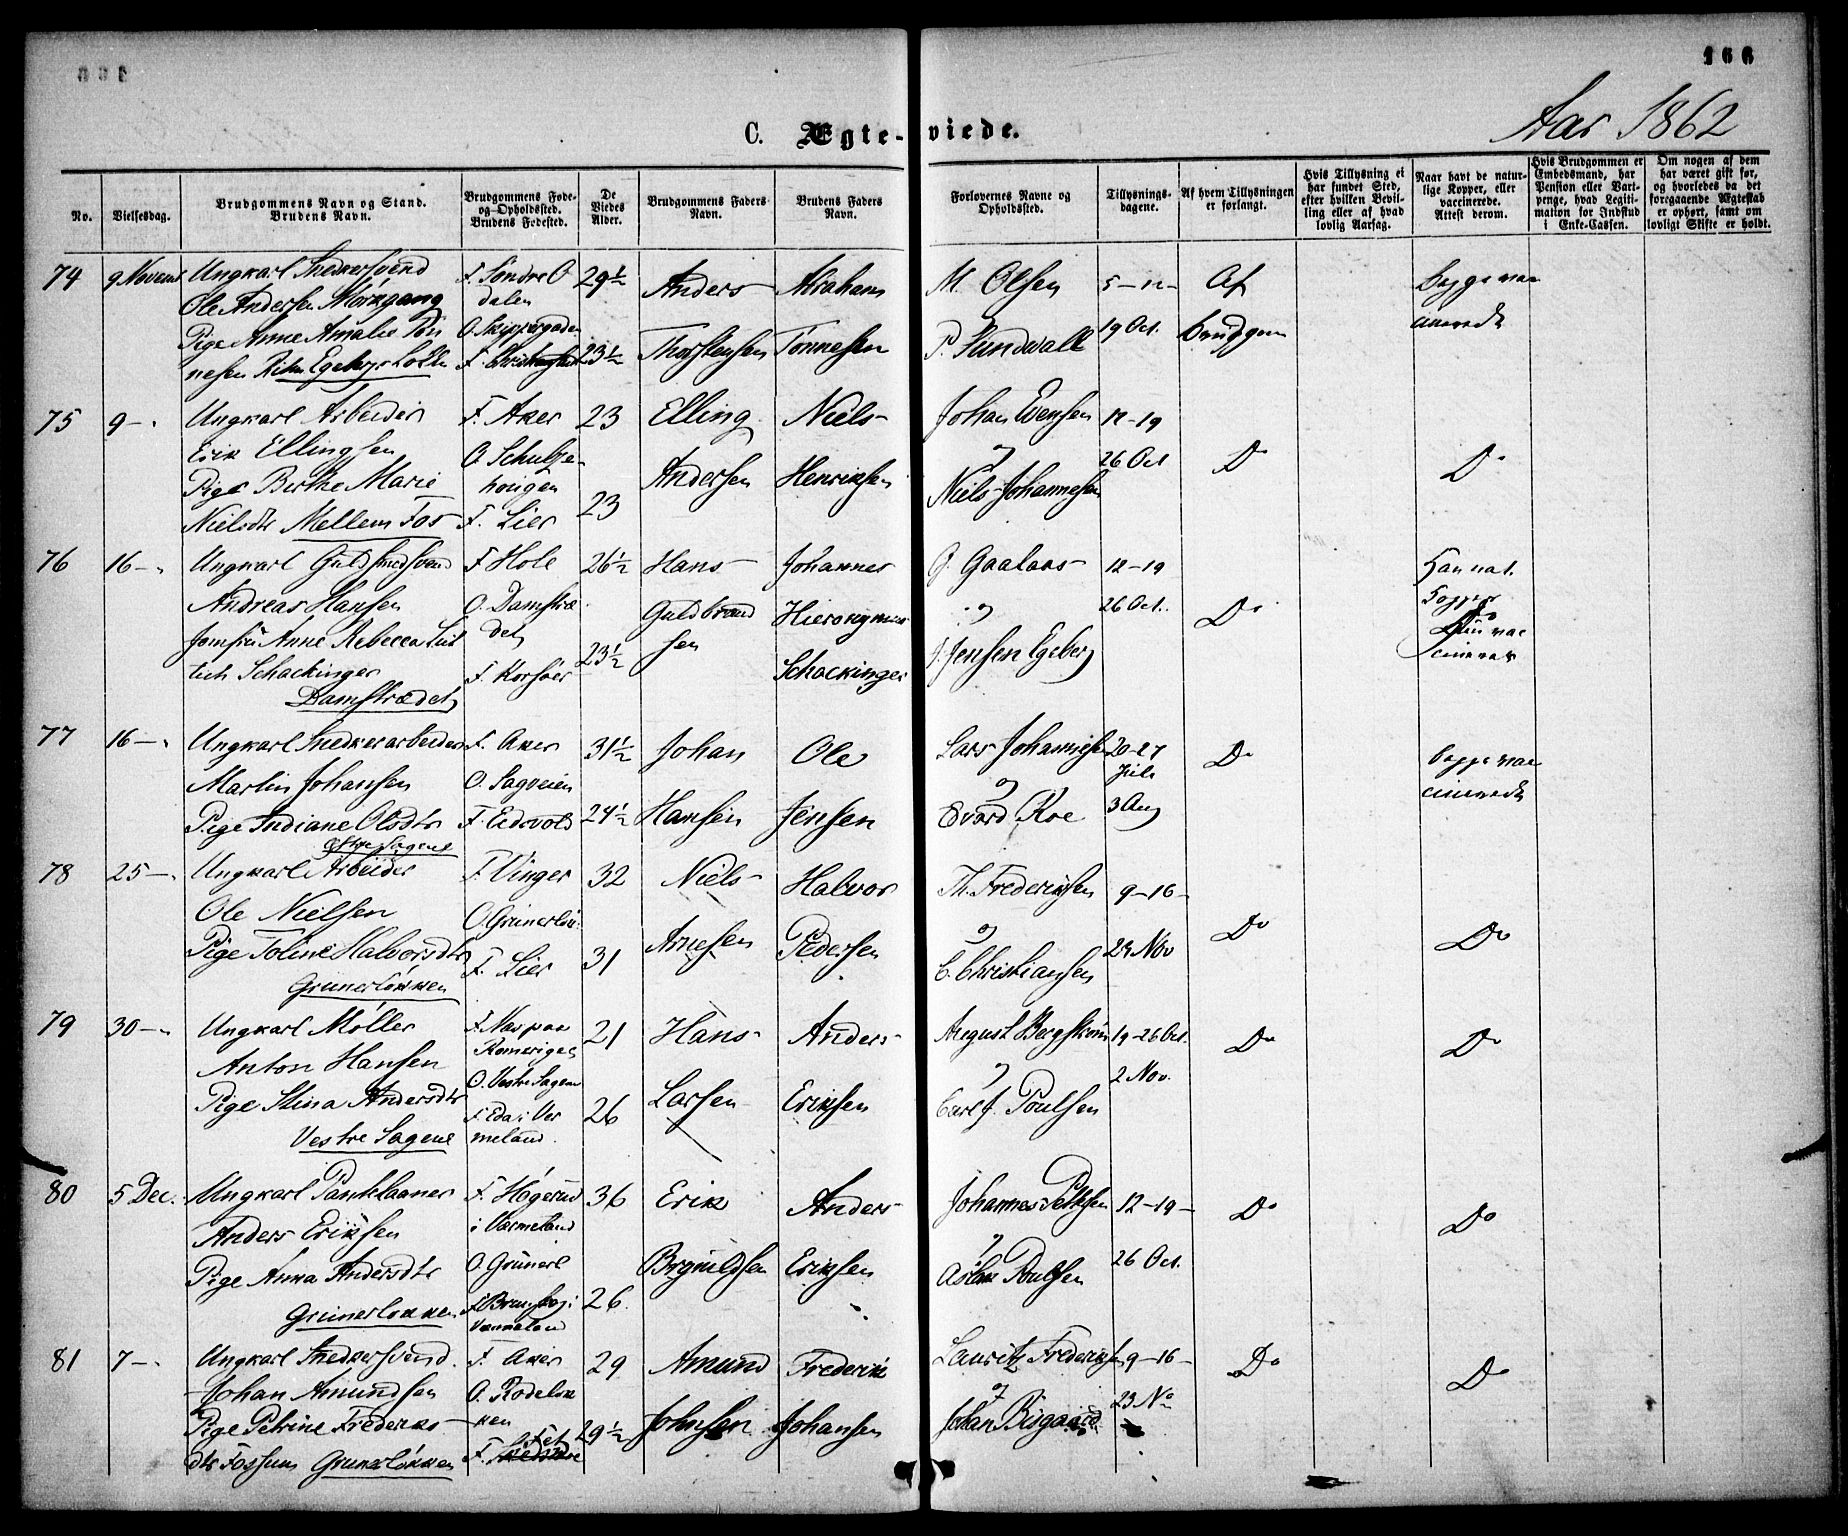 166
Aar 1862
C. Ægte-viede.
No.
Vielsesdag.
Brudgommens Navn og Stand.
Brudens Navn.
Brudgommens Føde-
og Opholdssted.
Brudens Fødested.
De
Viedes
Alder.
Brudgommens Faders
Navn.
Brudens Faders
Navn.
Forlovernes Navne og
Opholdssted.
Tillysnings-
dagene.
Af hvem Tillysningen
er forlangt.
Hvis Tillysning ei
har fundet Sted,
efter hvilken Bevil-
ling eller af hvad
lovlig Aarsag.
Naar havt de natur-
lige Kopper, eller
vaccinerede.
Attest derom.
Hvis Brudgommen er
Embedsmand, har
Pension eller Vart-
penge, hvad Legiti-
mation for Indskud
i Enke-Cassen.
Om nogen af dem
har været gift før,
og hvorledes da det
foregaaende Ægteskab
er ophørt, samt om
lovligt Skifte er holdt.
74 9 Novemb
Ungkarl Snedkersvend
Ole Andersen Mørkgang
Pige Anne Amalie Tøn
nesen
F. Søndre O
dalen
O. Skippergaden
29½
23½
Anders
Thorstensen
Abraham
Tønnesen
M Olsen
P. Sundwall
5-12-
19 Oct.
Af
Brudgom
Begge vac
cinerede
75 9 -
Ungkarl Arbeider
Erik Ellingsen
Pige Berthe Marie
Nielsdtr Mellem Fos
F. Aker
O Schultze
hougen
F. Lier
23
23
Elling
Andersen
Niels
Henriksen
Johan Evensen
og
Niels Johannesen
12-19
26 Oct
Do
Do
76 16 -
Ungkarl Guldsmedsvend
Andreas Hansen
Jomfru Anne Rebecca Lut
tich Schackinger
Damstrædet
F Hole
O. Damstræ
det
F. Korsøer
26½
23½
Hans
Guldbrand
sen
Johannes
Hieronymus
Schackinger
G. Gaalaas
og
J. Jensen Egeberg
12-19
26 Oct.
Do
Han nat.
Kopper
Hun vac
cineret
77 16 -
Ungkarl Snedkerarbeider
Martin Johansen
Pige Indiane Olsdtr
Østre Sagene
F. Aker
O. Sagveien
F. Eidsvold
31½
24½
Johan
Hansen
Ole
Jensen
Lars Johannesen
og
Evard Roe
20-27
Juli
3 Aug
Do
Begge vac
cinerede
78 25 -
Ungkarl Arbeider
Ole Nielsen
Pige Toline Halvorsdtr
Grunerløkken
F. Vinger
O Grunerløk.
F. Lier
32
31
Niels
Arnesen
Halvor
Pedersen
Th. Frederiksen
og
C. Christiansen
9-16-
23 Nov
Do
Do
79 30 -
Ungkarl Møller
Anton Hansen
Pige Stina Andersdtr
Vestre Sagene
F. Næs paa
Romerige
O. Vestre Sagene
F. Eda i Ver
meland.
21
26
Hans
Larsen
Anders
Eriksen
August Bergstrøm
og
Carl J. Poulsen
19-26 Oct.
2 Nov.
Do
Do
80 5 Dec.
Ungkarl Panklaaner
Anders Eriksen
Pige Anna Andersdtr
Grunerløkken
F. Høgerud
i Vermeland
O. Grünerl
F. Brunskog i
Vermeland
36
26.
Erik
Brynildsen
Anders
Eriksen
Johannes Pettersen
og
Aslak Poulsen
12-19-
26 Oct.
Do
Do
81 7 -
Ungkarl Snedkersvend.
Johan Amundsen
Pige Petrine Frederiks
dtr Fossum Grunerløkken
F. Aker
O. Rodeløk
ken
F. Fet
29
29½
Amund
Johnsen
Frederik
Johansen
Lauritz Frederiksen
og
Johan Bisgaard
9-16-
23 No
Do
Do